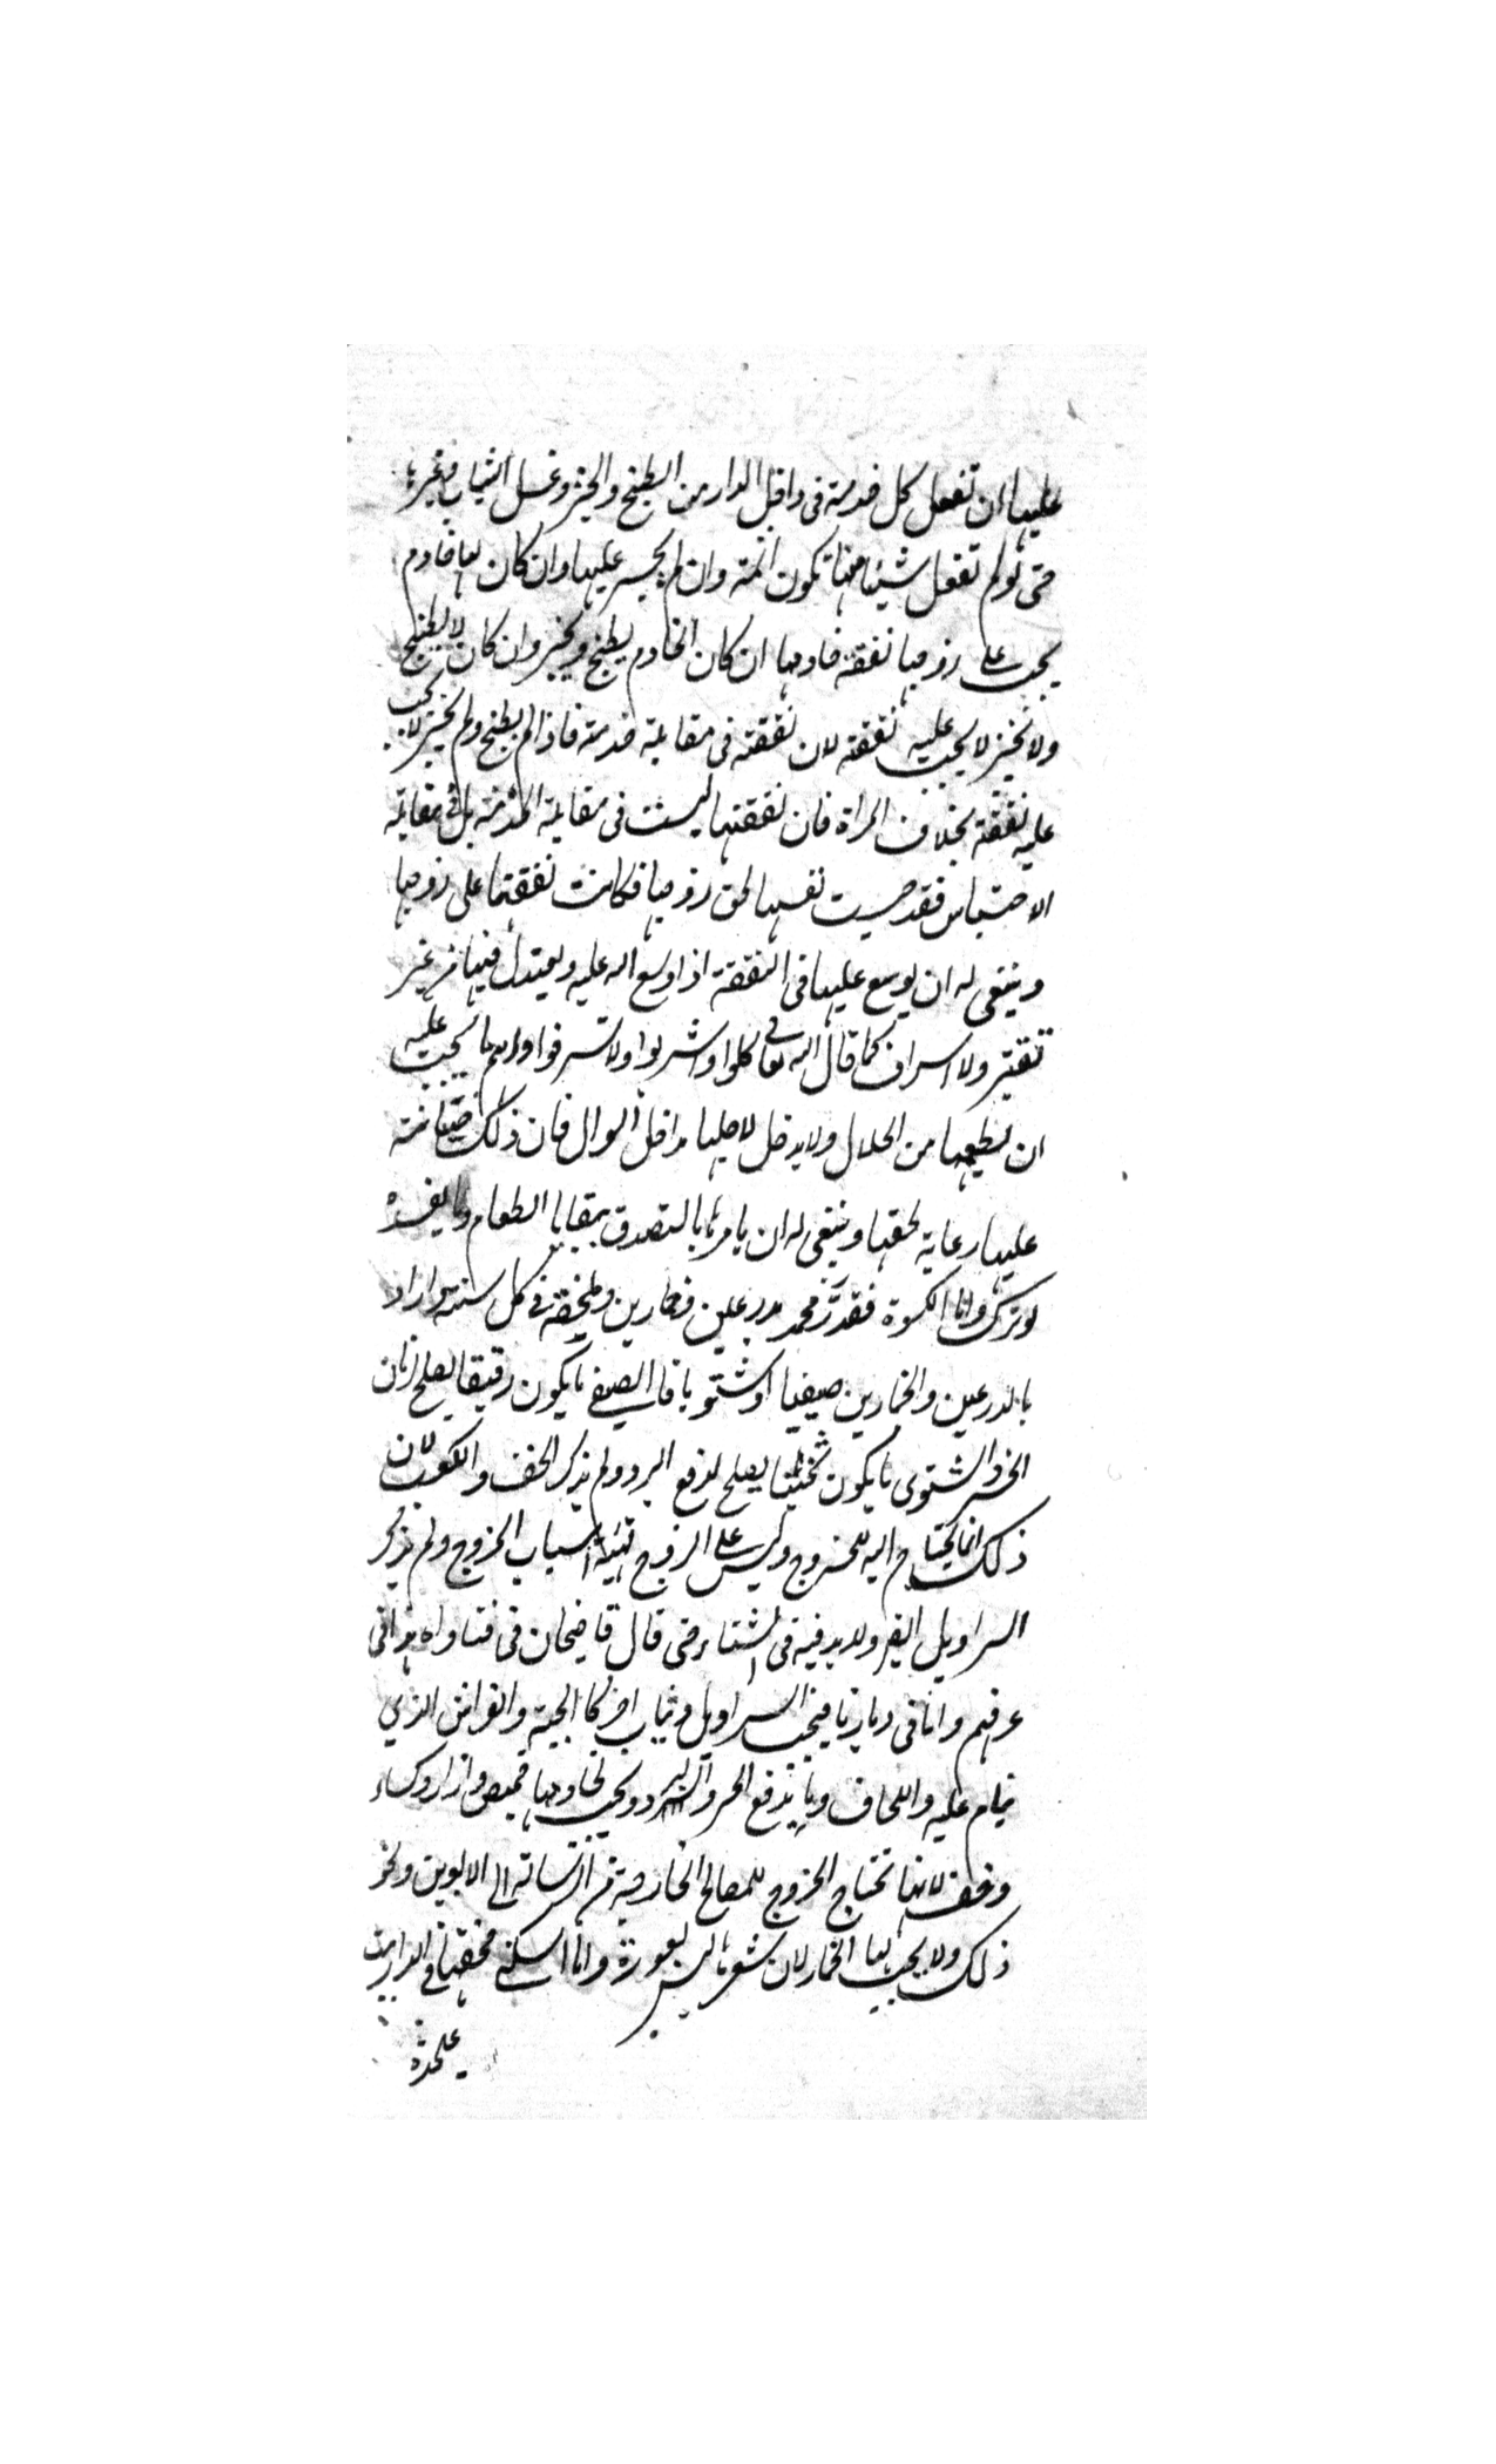 عليها ان تفعل كل خدمة فى داخل الدار من الطبخ والخبز وغسل الثياب وغيرها
حتى لو لم تفعل شيئا منها تكون اثمة وان لم يجبر عليها وان كان لها خادم
يجب على زوجها نفقة خادمها ان كان الخادم يطبخ ويخبز وان كان لا يطبخ
ولا يخبز لا يجب عليه نفقته لان نفقته فى مقابلة خدمته فاذا لم يطبخ ولم يخبز لا يجب
عليه نفقته بخلاف المراة فان نفقتها ليست فى مقابلة الخدمة بل فى مقابلة
الاحتباس فقد حبست نفسها لحق زوجها فكانت نفقتها على زوجها
وينبغى له ان يوسع عليها فى النفقة اذا وسع الله عليه ويعتدل فيها من غير
تقتير ولا اسراف كما قال الله تعالى كلوا واشربوا ولا تسرفوا واهم ما يجب عليه
ان يطعمها من الحلال ولا يدخل لاجلها مداخل السوال فان ذلك خيانة
عليها رعاية لحقها وينبغى له ان يامرها بالتصدق ببقايا الطعام وما يفسد
لو ترك واما الكسوة فقدر محمد بدرعين وخمارين وملحفة فى كل سنة واراد
بالدرعين والخمارين صيفيا وشتويا فالصيفى ما يكون رقيقا يصلح لزمان
الحر والشتوى ما يكون ثخينا يصلح لدفع البرد ولم يذكر الخف والمكعب لان
ذلك انما يحتاج اليه للخروج وليس على الزوج تهيئة اسباب الخروج ولم يذكر
السراويل ايضا ولا بد فيه فى الشتاء حتى قال قاضيخان فى فتاواه هذا فى
عرفهم واما فى ديارنا فيجب السراويل وثياب اخر كالجبة والفراش الذي
ينام عليه واللحاف وما يدفع الحر والبرد ويجب لخادمها قميص وازار وكساء
وخف لانها تحتاج الخروج للمصالح الخارجية من الرسالة الى الابوين ونحو
ذلك ولا يجب لها الخمار لان شعرها ليس بعورة واما السكنى فحقها فى الدار بيت
عليحدة